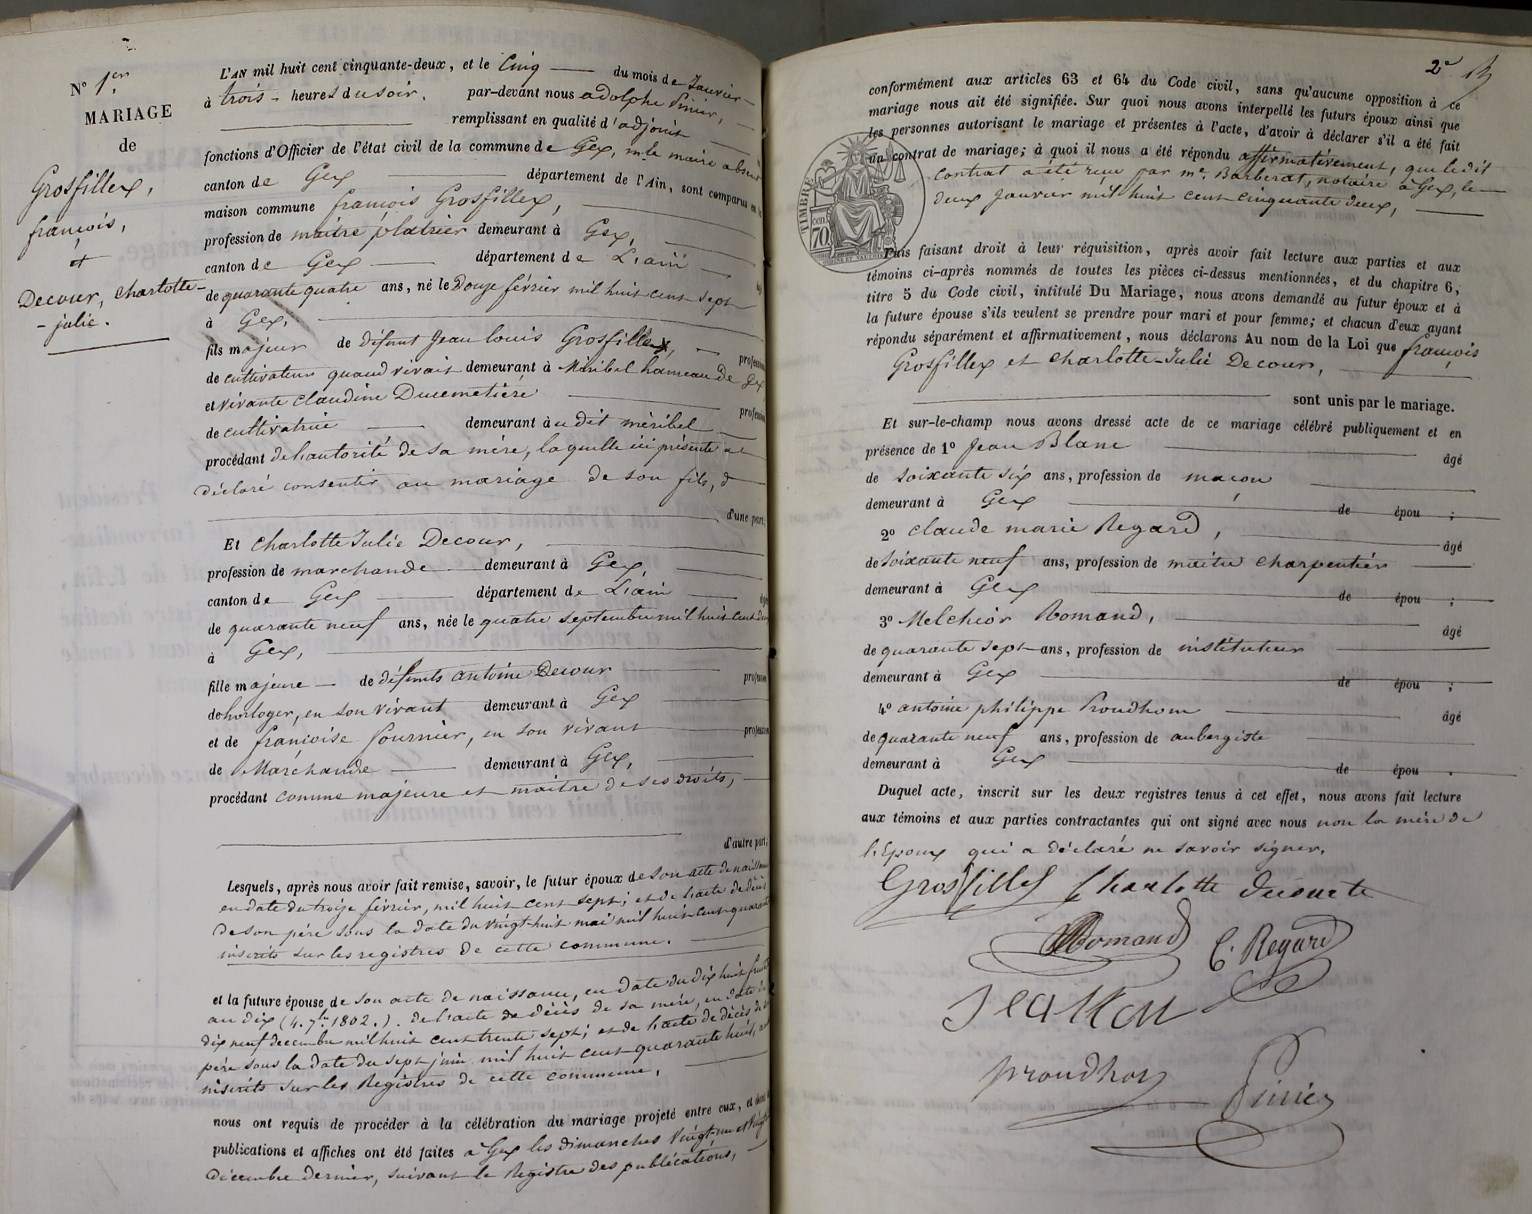 N° 1er.
MARIAGE
de
Grosfillex,
françois,
et
Decour, charlotte-
-julie.
L'AN mil huit cent cinquante-deux, et le Cinq du mois de Janvier
à trois heures du soir. par-devant nous adolphe Pinier,
remplissant en qualité d'adjoint
fonctions d'Officier de l'état civil de la commune de Gex, m. le maire absent
canton de Gex département de l'Ain, sont comparus en la
maison commune françois Grosfillex,
profession de maitre platrier demeurant à Gex,
canton de Gex département de L'ain
de quarante quatre ans, né le Douze février mil huit cent sept
à Gex,
fils majeur de défunt Jean Louis Grosfillex, profession
de cultivateur quand vivait demeurant à Miribel hameau de Gex
et vivante claudine Ducemetière profession
de cultivatrice demeurant à u dit méribel
procédant de l'autorité de sa mère, laquelle ici présente a
déclaré consentir au mariage de son fils, d
d'une part;
Et Charlotte Julie Decour,
profession de marchande demeurant à Gex,
canton de Gex département de L'ain
de quarante neuf ans, née le quatre septembre mil huit cent deux
à Gex,
fille majeure de défunts antoine Decour profession
de horloger, en son vivant demeurant à Gex
et de françoise fournier, en son vivant profession
de Marchande demeurant à Gex,
procédant comme majeure et maitre de ses droits,
d'autre part.
Lesquels, après nous avoir fait remise, savoir, le futur époux de son acte de naissance
en date du treize février, mil huit cent sept; et de l'acte de décès
de son père sous la date du vingt-huit mai mil huit cent quarante
inscrits sur les registres de cette commune.
et la future épouse de son acte de naissance, en date du dix huit fructidor
an dix (4. 7bre 1802.). de l'acte de décès de sa mère, en date du
dix neuf decembre mil huit cent trente sept; et de l'acte de décès de son
père sous la date du sept juin mil huit cent quarante huit,
inscrits sur les Registres de cette commune,
nous ont requis de procéder à la célébration du mariage projeté entre eux, et dont les
publications et affiches ont été faites à Gex les dimanches vingt-un et vingt
décembre dernier, suivant le Registre des publications,
2e
conformément aux articles 63 et 64 du Code civil, sans qu'aucune opposition à ce
mariage nous ait été signifiée. Sur quoi nous avons interpellé les futurs époux ainsi que
les personnes autorisant le mariage et présentes à l'acte, d'avoir à déclarer s'il a été fait
un contrat de mariage; à quoi il nous a été répondu affirmativement, que le dit
contrat a été reçu par me. Barberat, notaire à Gex, le
deux Janvier mil huit cent cinquante deux,
TIMBRE
70
Puis faisant droit à leur réquisition, après avoir fait lecture aux parties et aux
témoins ci-après nommés de toutes les pièces ci-dessus mentionnées, et du chapitre 6,
titre 5 du Code civil, intitulé Du Mariage, nous avons demandé au futur époux et à
la future épouse s'ils veulent se prendre pour mari et pour femme; et chacun d'eux ayant
répondu séparément et affirmativement, nous déclarons Au nom de la Loi que françois
Grosfillex et charlotte-Julie Decour,
sont unis par le mariage.
Et sur-le-champ nous avons dressé acte de ce mariage célébré publiquement et en
présence de 1° Jean Blanc âgé
de soixante six ans, profession de maçon
demeurant à Gex de épou ;
2° claude marie Regard, âgé
de soixante neuf ans, profession de maitre charpentier
demeurant à Gex de épou ;
3° Melchior Romand, âgé
de quarante sept ans, profession de instituteur
demeurant à Gex de épou ;
4° antoine philippe Proudhom âgé
de quarante neuf ans, profession de aubergiste
demeurant à Gex de épou .
Duquel acte, inscrit sur les deux registres tenus à cet effet, nous avons fait lecture
aux témoins et aux parties contractantes qui ont signé avec nous non la mère de
l'Epoux qui a déclaré ne savoir signer.
Grosfillex Charlotte
Romand C. Regard
proudhon Pinier